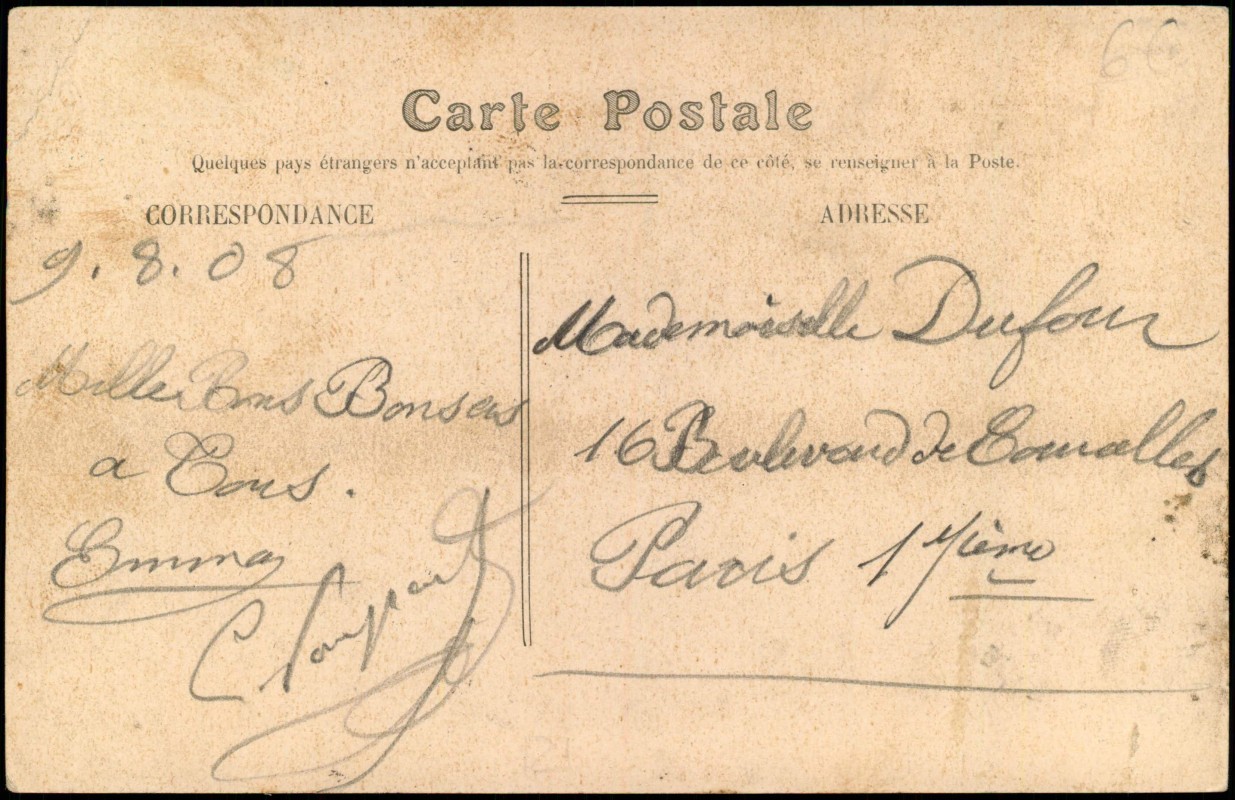 6€
Carte Postale
Quelques pays étrangers n'acceptant pas la correspondance de ce côté, se renseigner à la Poste.
CORRESPONDANCE
ADRESSE
9.8.08
Mille Bons
a Tous.
Emma
Mademoiselle Dufour
16 Boulevard de Courcelles
Paris 17ième